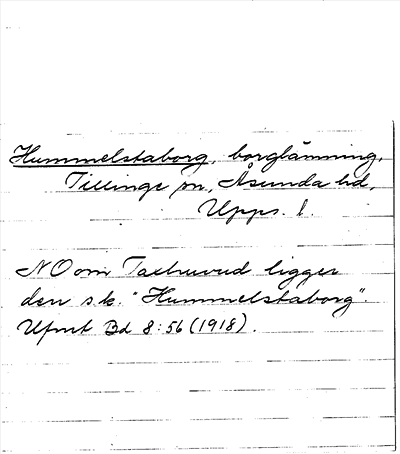 Hummelstaborg, borglämning,
Tillinge sn, Åsunda hd,
Upps. l.
NO om Taxhuvud ligger
den s.k. "Hummelstaborg".
Ufmt Bd 8:56 (1918).